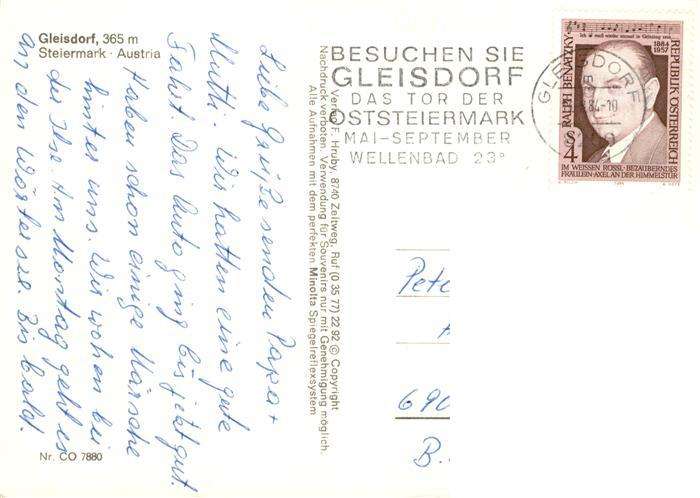 Gleisdorf, 365 m
Steiermark · Austria
Liebe Grüße senden Papa +
Mutti. Wir hatten eine gute
Fahrt. Das Auto ging bis jetzt gut.
Haben schon einige Märsche
hinter uns. Wir wohnen bei
der Ilse. Am Montag geht es
an den Wörtersee. Bis bald!
Nr. CO 7880
Verlag F. Hruby, 8740 Zeltweg, Ruf (0 35 77) 22 92 © Copyright
Nachdruck verboten. Verwendung für Souvenirs nur mit Genehmigung möglich.
Alle Aufnahmen mit dem perfekten Minolta Spiegelreflexsystem
BESUCHEN SIE
GLEISDORF
DAS TOR DER
OSTSTEIERMARK
MAI-SEPTEMBER
WELLENBAD 23°
GLEISDORF
RALPH BENATZKY
1884
1957
REPUBLIK ÖSTERREICH
S 4
IM WEISSEN RÖSSL · BEZAUBERNDES
FRÄULEIN · AXEL AN DER HIMMELSTÜR
Pete
690
B..